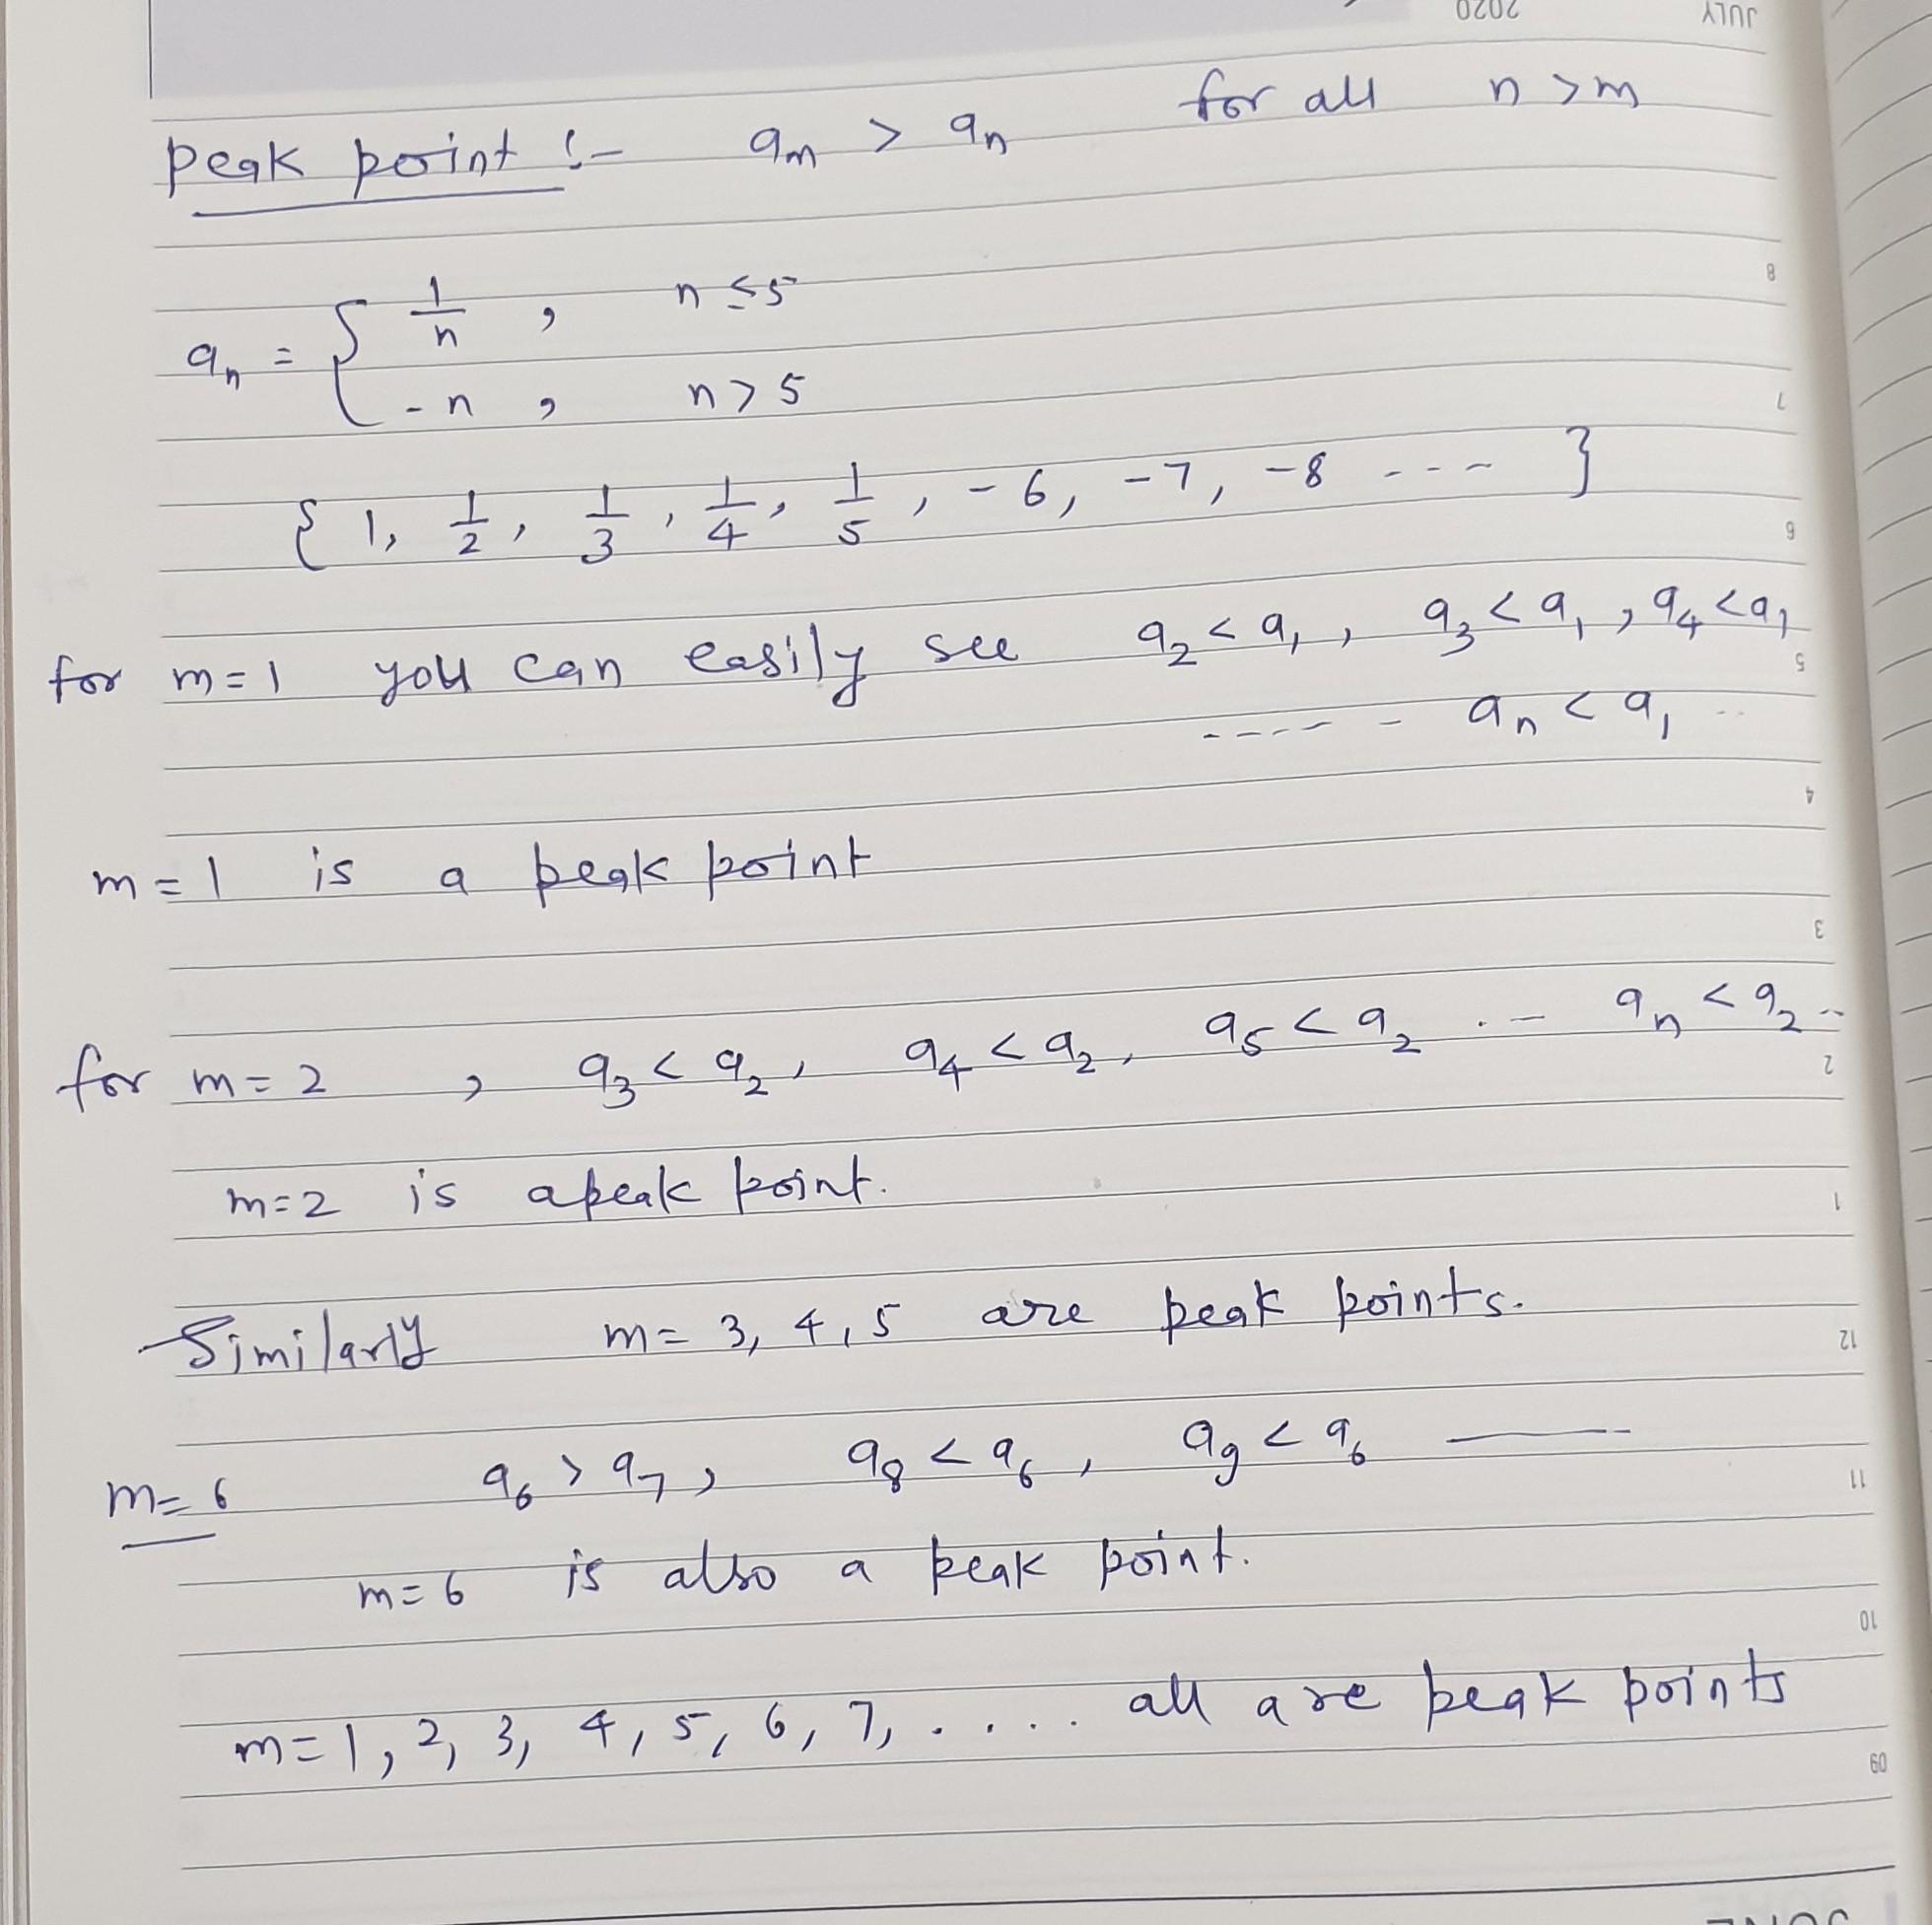 JULY 2020
Peak point :- am > an for all n > m
an = { 1/n , n ≤ 5
-n , n > 5
{ 1, 1/2, 1/3, 1/4, 1/5, -6, -7, -8 ---- }
for m=1 you can easily see a2 < a1, a3 < a1, a4 < a1
----- an < a1 --
m=1 is a peak point
for m=2 , a3 < a2, a4 < a2, a5 < a2 .- an < a2 --
m=2 is a peak point.
Similarly m= 3, 4, 5 are peak points.
m=6 a6 > a7, a8 < a6, a9 < a6 ——
m=6 is also a peak point.
m=1, 2, 3, 4, 5, 6, 7, .... all are peak points
8
7
6
5
4
3
2
1
12
11
10
09